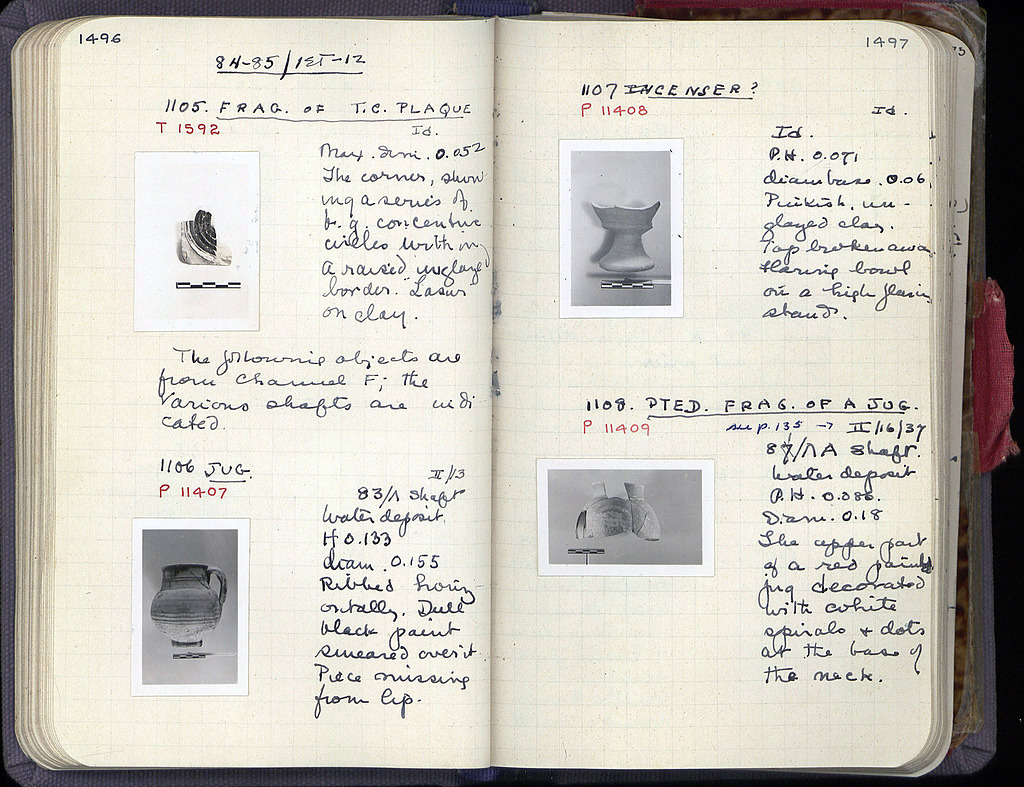 1496
84-85/ΙΣΤ-12
1105. FRAG. OF T.C. PLAQUE
T 1592
Id.
Max. dim. 0.052
The corner, show
ing a series of
b. g. concentric
circles within
a raised unglazed
border.
on clay.
The following objects are
from Channel F; the
various shafts are indi-
cated.
1106 JUG.
P 11407
II/13
83/Λ shaft
Water deposit
H 0.133
diam. 0.155
Ribbed horiz-
ontally. Dull
black paint
smeared over it
Piece missing
from lip.
1497
1107 INCENSER?
P 11408
Id.
Id.
P.H. 0.071
diam base. 0.06
Pinkish, un-
glazed clay.
Top broken away
flaring bowl
on a high flaring
stand.
1108. PTED. FRAG. OF A JUG.
P 11409
see p. 135 → II/16/37
87/ΛΑ Shaft.
Water deposit
P.H. 0.086.
Diam. 0.18
The upper part
of a red painted
jug decorated
with white
spirals + dots
at the base of
the neck.